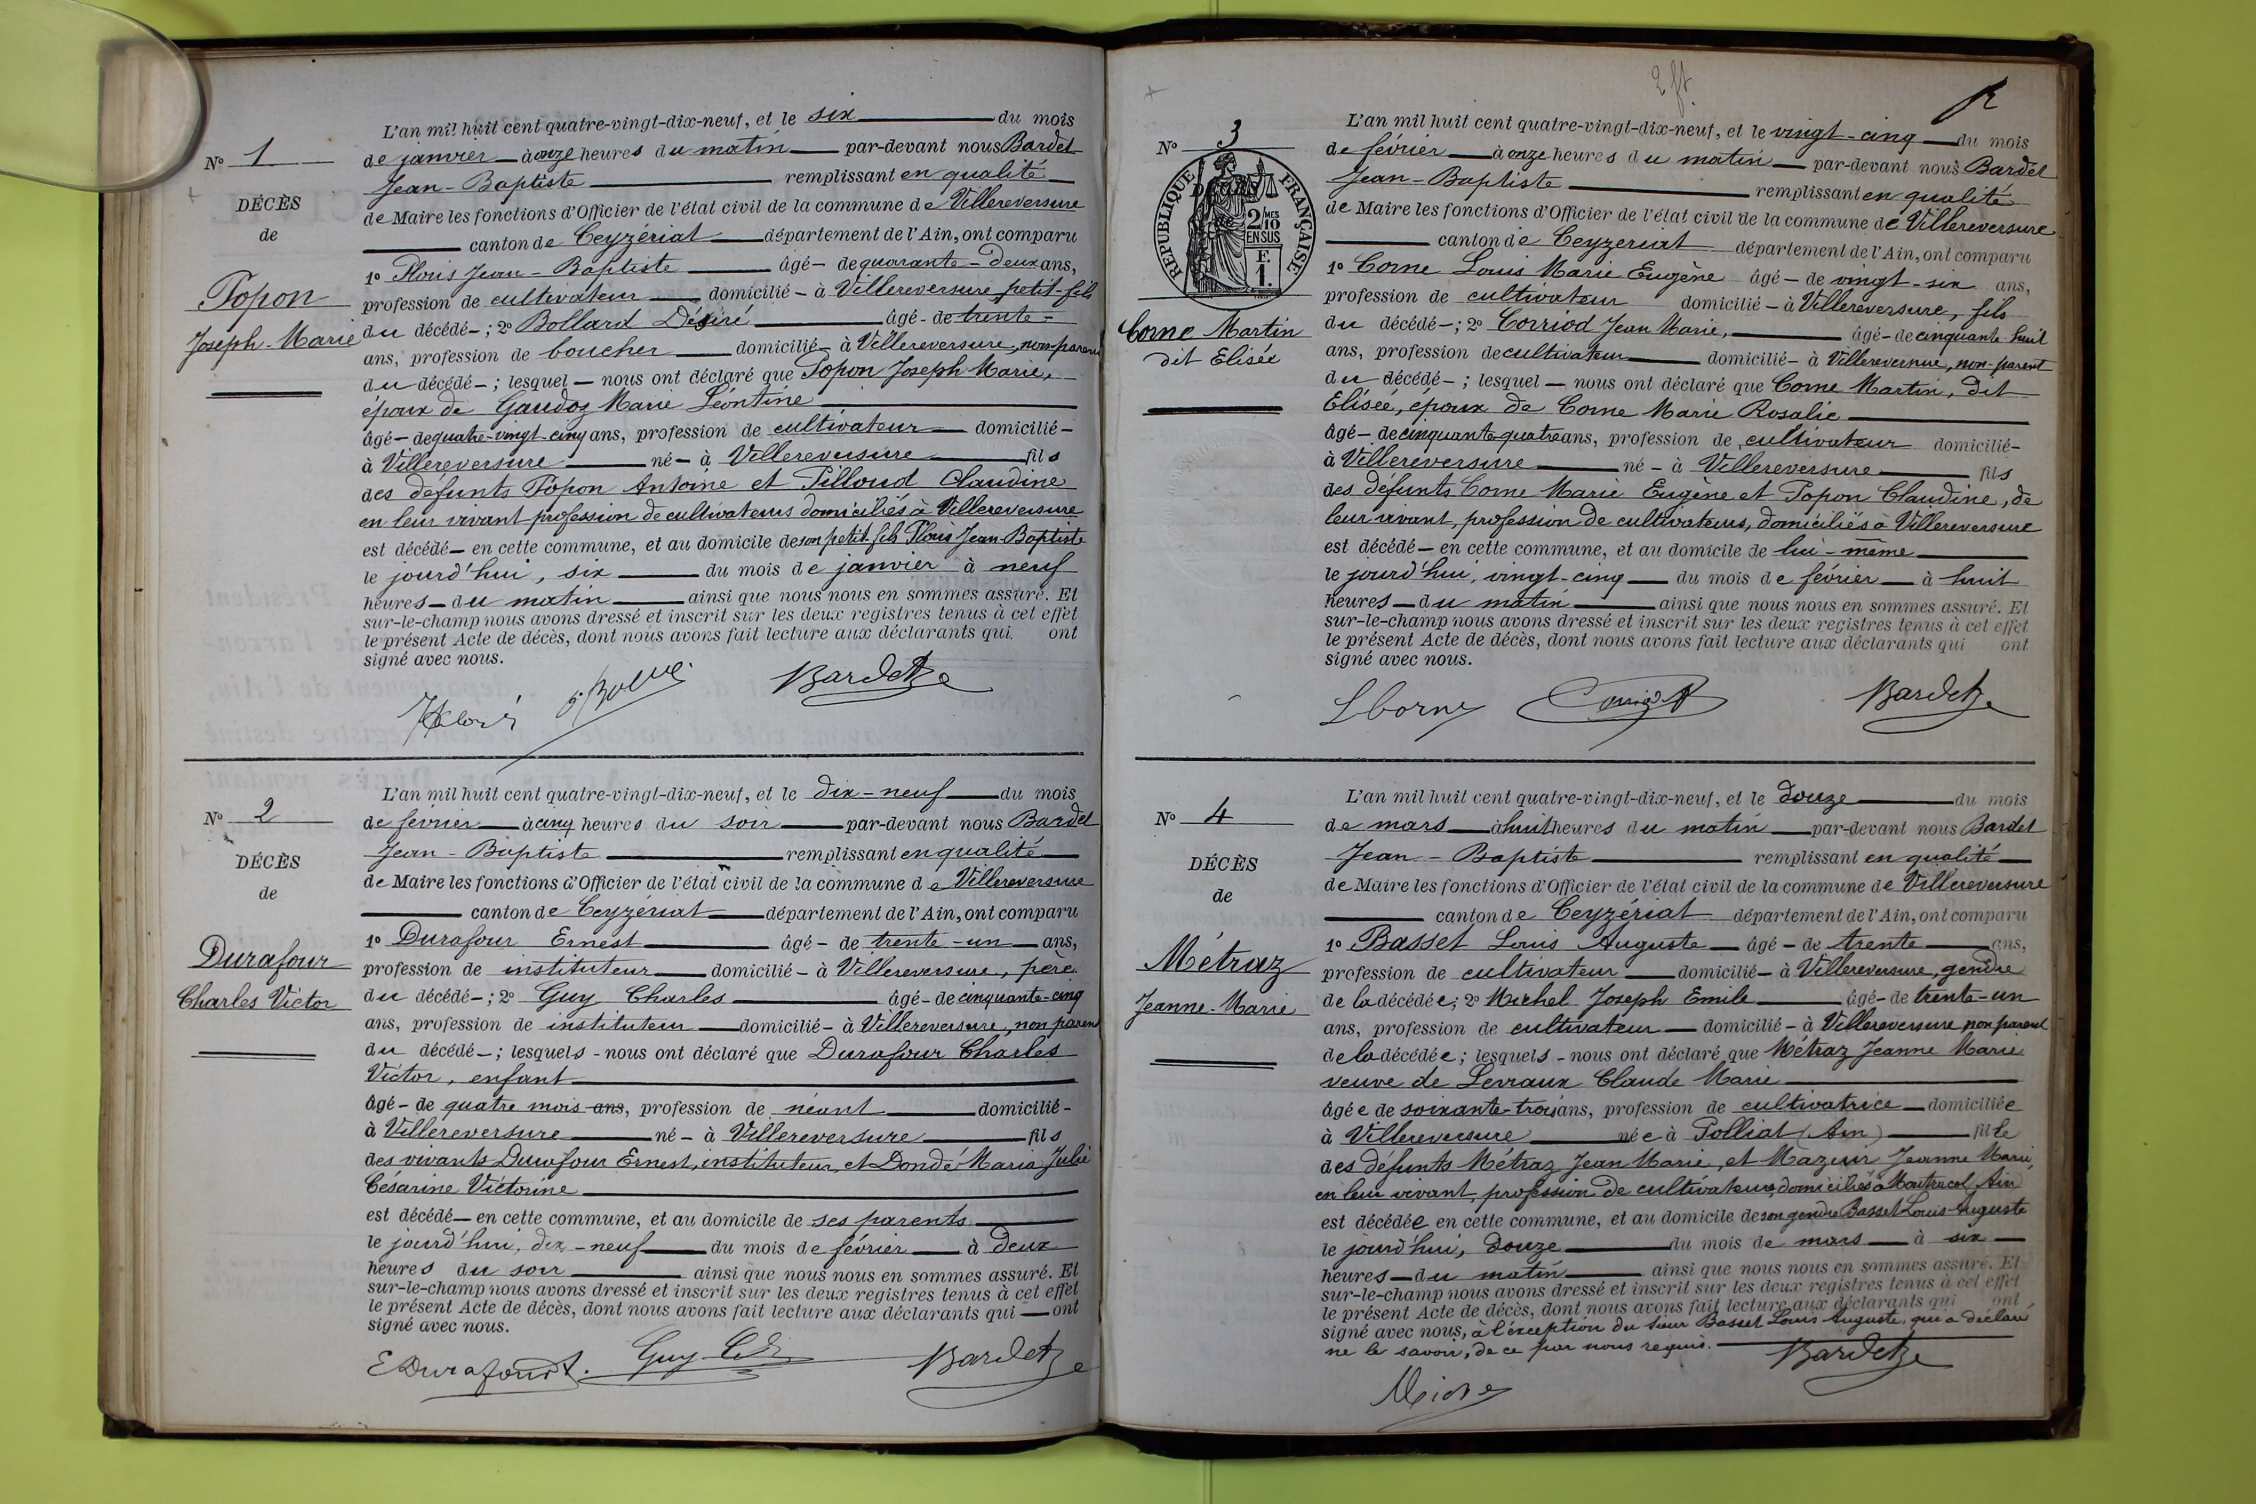 N° 1
DÉCÈS
de
Popon
Joseph-Marie
L'an mil huit cent quatre-vingt-dix-neuf, et le six du mois
de janvier à onze heures du matin par-devant nous Bardet
Jean-Baptiste remplissant en qualité
de Maire les fonctions d'Officier de l'état civil de la commune de Villereversure
canton de Ceyzériat département de l'Ain, ont comparu
1° Jean-Baptiste âgé - de quarante-deux ans,
profession de cultivateur domicilié - à Villereversure petit-fils
du décédé - ; 2° Bollard Désiré âgé - de trente -
ans, profession de boucher domicilié - à Villereversure, non parent
du décédé - ; lesquel - nous ont déclaré que Popon Joseph Marie,
époux de Gaudoz Marie Léontine
âgé - de quatre-vingt-cinq ans, profession de cultivateur domicilié -
à Villereversure né - à Villereversure fils
des défunts Popon Antoine et Pilloud Claudine
en leur vivant profession de cultivateurs domiciliés à Villereversure
est décédé - en cette commune, et au domicile de son petit-fils Jean-Baptiste
le jourd'hui, six du mois de janvier à neuf
heures - du matin ainsi que nous nous en sommes assuré. Et
sur-le-champ nous avons dressé et inscrit sur les deux registres tenus à cet effet
le présent Acte de décès, dont nous avons fait lecture aux déclarants qui ont
signé avec nous.
Bardet
N° 2
DÉCÈS
de
Durafour
Charles Victor
L'an mil huit cent quatre-vingt-dix-neuf, et le dix-neuf du mois
de février à cinq heures du soir par-devant nous Bardet
Jean-Baptiste remplissant en qualité
de Maire les fonctions d'Officier de l'état civil de la commune de Villereversure
canton de Ceyzériat département de l'Ain, ont comparu
1° Durafour Ernest âgé - de trente-un ans,
profession de instituteur domicilié - à Villereversure, père
du décédé - ; 2° Guy Charles âgé - de cinquante-cinq
ans, profession de instituteur domicilié - à Villereversure, non parent
du décédé - ; lesquels - nous ont déclaré que Durafour Charles
Victor, enfant
âgé - de quatre mois ans, profession de néant domicilié -
à Villereversure né - à Villereversure fils
des vivants Durafour Ernest, instituteur, et Dondé Maria Julie
Césarine Victorine
est décédé - en cette commune, et au domicile de ses parents
le jourd'hui, dix-neuf du mois de février à deux
heures du soir ainsi que nous nous en sommes assuré. Et
sur-le-champ nous avons dressé et inscrit sur les deux registres tenus à cet effet
le présent Acte de décès, dont nous avons fait lecture aux déclarants qui - ont
signé avec nous.
E Durafour Guy Bardet
N° 3
RÉPUBLIQUE FRANÇAISE
2/10 MES
EN SUS
F. 1.
Corne Martin
dit Elisée
L'an mil huit cent quatre-vingt-dix-neuf, et le vingt-cinq du mois
de février à onze heures du matin par-devant nous Bardet
Jean-Baptiste remplissant en qualité
de Maire les fonctions d'Officier de l'état civil de la commune de Villereversure
canton de Ceyzeriat département de l'Ain, ont comparu
1° Corne Louis Marie Eugène âgé - de vingt-six ans,
profession de cultivateur domicilié - à Villereversure, fils
du décédé - ; 2° Corriod Jean Marie, âgé - de cinquante-huit
ans, profession de cultivateur domicilié - à Villereversure, non-parent
du décédé - ; lesquel - nous ont déclaré que Corne Martin, dit
Elisée, époux de Corne Marie Rosalie
âgé - de cinquante-quatre ans, profession de cultivateur domicilié -
à Villereversure né - à Villereversure fils
des défunts Corne Marie Eugène et Popon Claudine, de
leur vivant, profession de cultivateurs, domiciliés à Villereversure
est décédé - en cette commune, et au domicile de lui-même
le jourd'hui, vingt-cinq du mois de février à huit
heures - du matin ainsi que nous nous en sommes assuré. Et
sur-le-champ nous avons dressé et inscrit sur les deux registres tenus à cet effet
le présent Acte de décès, dont nous avons fait lecture aux déclarants qui ont
signé avec nous.
L Corne Corriod Bardet
N° 4
DÉCÈS
de
Métraz
Jeanne-Marie
L'an mil huit cent quatre-vingt-dix-neuf, et le douze du mois
de mars à huit heures du matin par-devant nous Bardet
Jean-Baptiste remplissant en qualité
de Maire les fonctions d'Officier de l'état civil de la commune de Villereversure
canton de Ceyzériat département de l'Ain, ont comparu
1° Basset Louis Auguste âgé - de trente ans,
profession de cultivateur domicilié - à Villereversure, gendre
de la décédée ; 2° Michel Joseph Emile âgé - de trente-un
ans, profession de cultivateur domicilié - à Villereversure non parent
de la décédée ; lesquels - nous ont déclaré que Métraz Jeanne Marie
veuve de Levraux Claude Marie
âgée de soixante-trois ans, profession de cultivatrice domiciliée
à Villereversure née à Polliat (Ain) fille
des défunts Métraz Jean Marie, et Mazuir Jeanne Marie,
en leur vivant, profession de cultivateurs, domiciliés à Montracol, Ain
est décédée en cette commune, et au domicile de son gendre Basset Louis-Auguste
le jourd'hui, douze du mois de mars à six
heures - du matin ainsi que nous nous en sommes assuré. Et
sur-le-champ nous avons dressé et inscrit sur les deux registres tenus à cet effet
le présent Acte de décès, dont nous avons fait lecture aux déclarants qui ont
signé avec nous, à l'exception du sieur Basset Louis Auguste, qui a déclaré
ne le savoir, de ce par nous requis.
Bardet